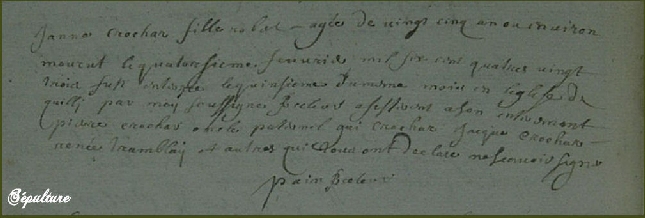 Janne crochar fille robar agée de vingt cinq an ou environ
mourut le quatorsieme feuvrie mil six cent quatres vingt
trois fust interee le quinsieme du mesme mois en leglise de
quilly par moy soussigne Recteur assistant a son enterement
pierre crochar oncle paternel qui crochar Jacque crochar
renée Tramblay et autres qui tous ont declare ne scauoir signe
pain Recteur
Sépulture